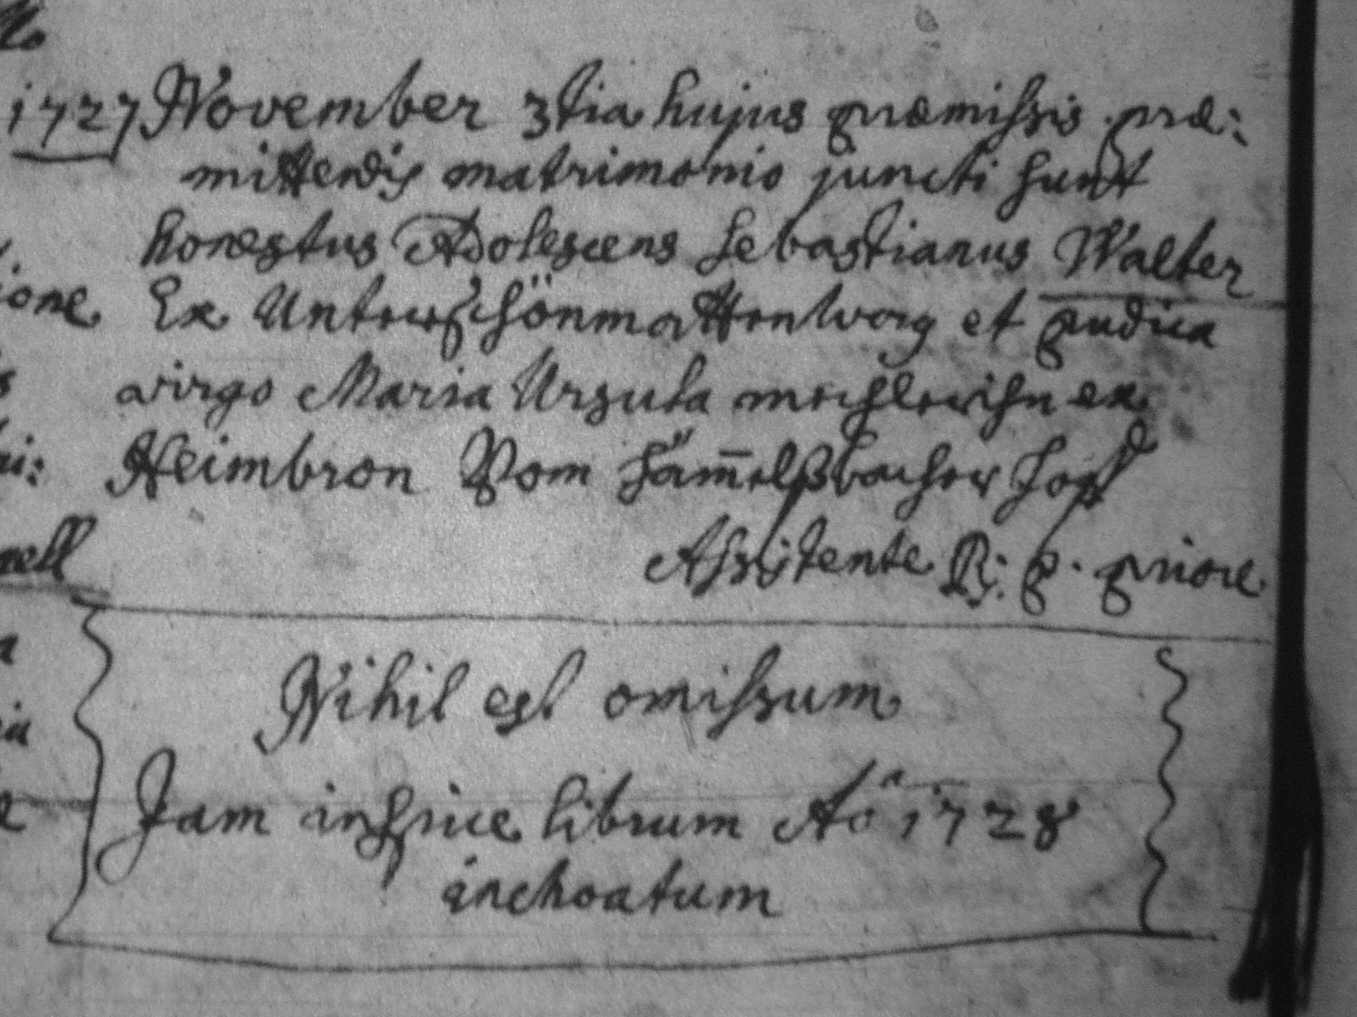 1727 November 3tia hujus præmissis præ:
mittendis matrimonio juncti sunt
honestus Adolescens Sebastianus Walter
Ex Unterschönmattenwag et pudica
virgo Maria Ursula ex
Heimbron Vom Häm̄elsbacher hoff
Assistente R: P. Priore
Nihil est omissum
Jam inspice librum Aō 1728
inchoatum